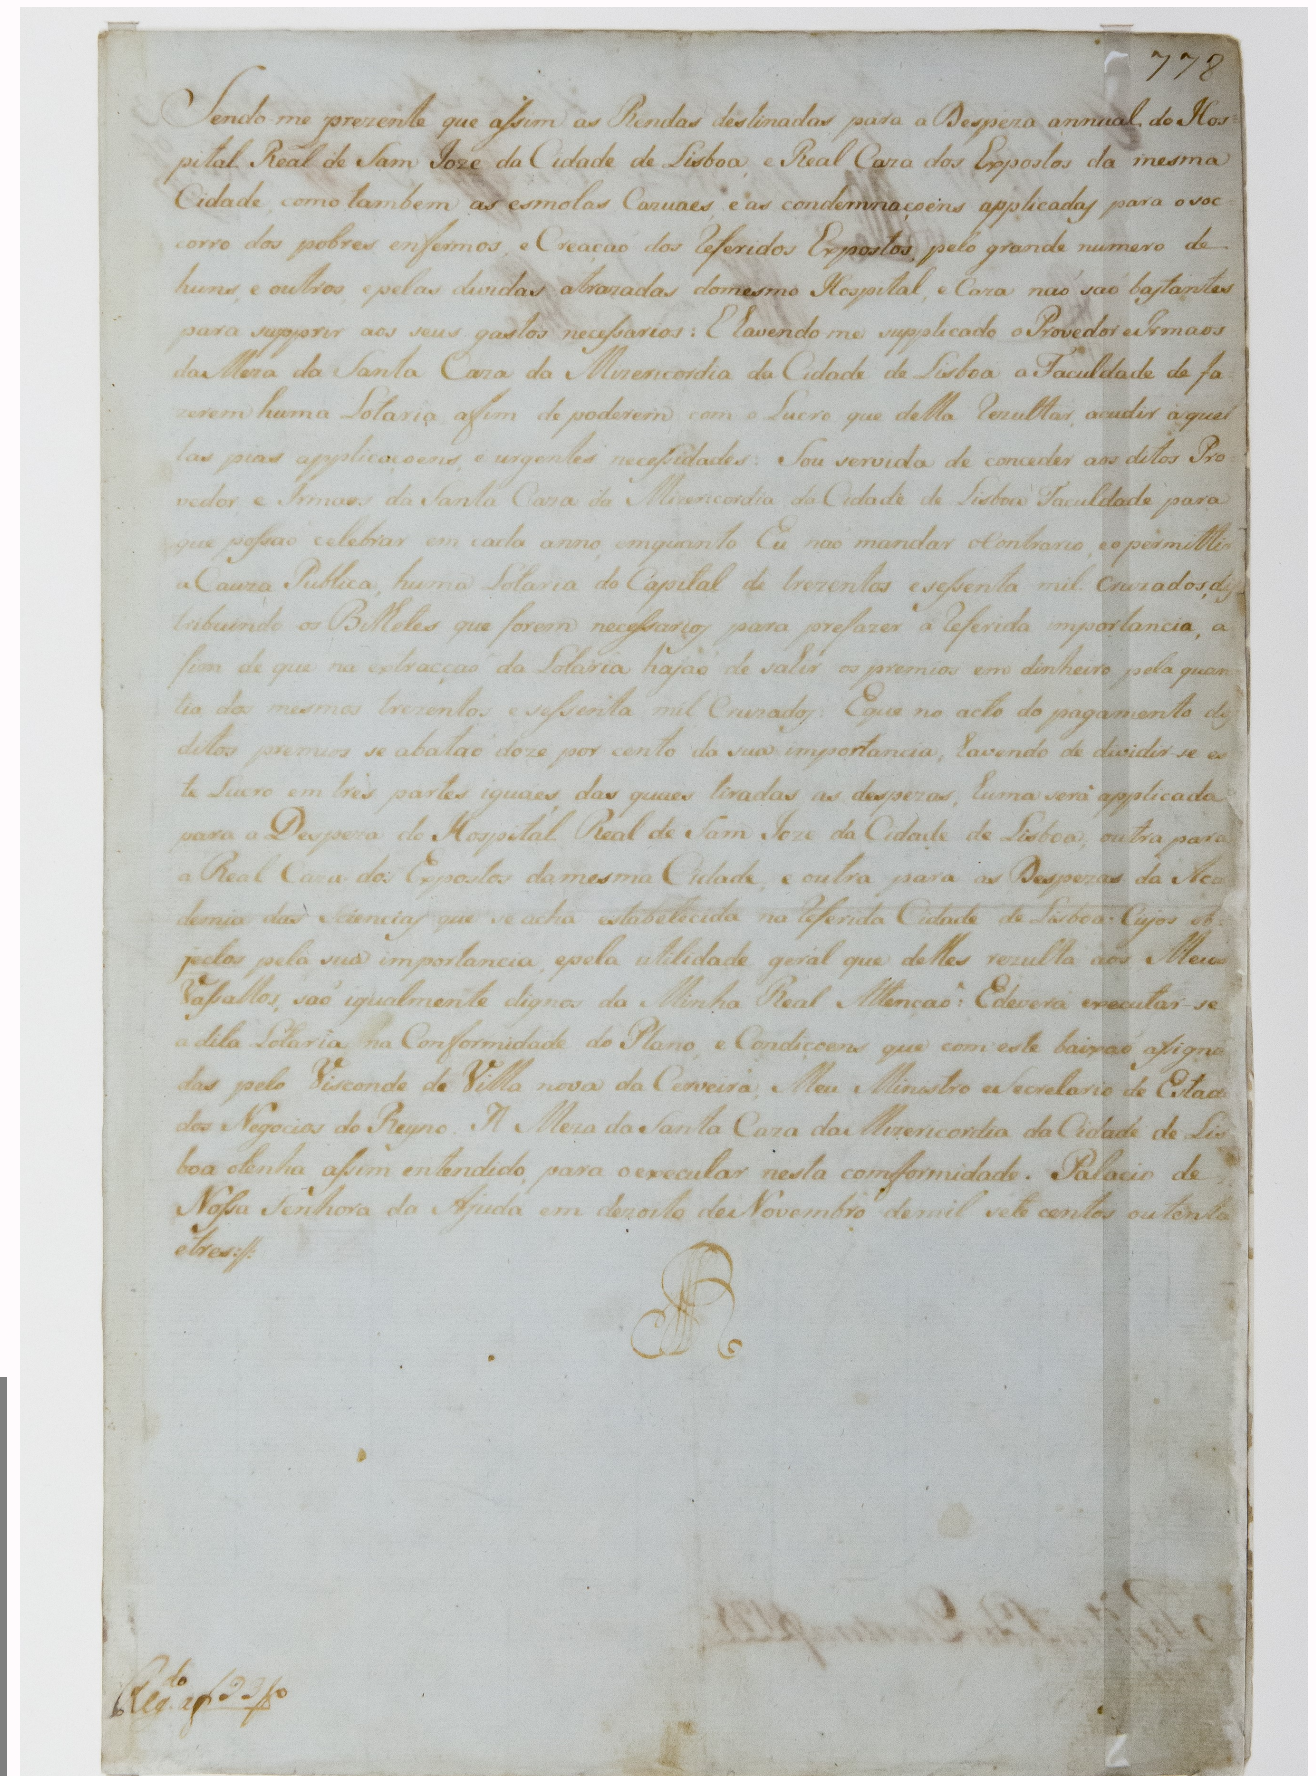 778
Sendo me prezente que assim as Rendas destinadas para a Despeza annual do Hos=
pital Real de Sam Joze da Cidade de Lisboa, e Real Caza dos Expostos da mesma
Cidade, como tambem as esmolas Cazuaes, e as condemnaçoens applicadas para o soc=
corro dos pobres enfermos, e Creaçao dos referidos Expostos, pelo grande numero de
huns, e outros, e pelas dividas atrazadas do mesmo Hospital, e Caza naõ saõ bastantes
para supprir aos seus gastos necessarios: E havendo me supplicado o Provedor e Irmaos
da Meza da Santa Caza da Mizericordia da Cidade de Lisboa a Faculdade de fa=
zerem huma Lotaria afim de poderem com o Lucro que della rezultar, acudir àquel
las pias applicaçoens, e urgentes necessidades: Sou servida de conceder aos ditos Pro=
vedor, e Irmaos da Santa Caza da Mizericordia da Cidade de Lisboa Faculdade para
que possaõ celebrar em cada anno, emquanto Eu nao mandar o Contrario, e o permittir
a Cauza Publica, huma Lotaria do Capital de trezentos e sessenta mil Cruzados, dis
tribuindo os Bilhetes que forem necessarios para prefazer a referida importancia, a
fim de que na extracçaõ da Lotaria hajaõ de sahir os premios em dinheiro pela quan
tia dos mesmos trezentos e sessenta mil Cruzados: E que no acto do pagamento dos
ditos premios se abataõ doze por cento da sua importancia, havendo de dividir-se es
te Lucro em tres partes iguaes, das quaes tiradas as despezas, huma será applicada
para a Despeza do Hospital Real de Sam Joze da Cidade de Lisboa, outra para
a Real Caza dos Expostos da mesma Cidade, e outra para as Despezas da Aca
demia das Sciencias que se acha estabelecida na referida Cidade de Lisboa: Cujos ob=
jectos pela sua importancia, e pela utilidade geral que delles rezulta aos Meus
Vassallos, saõ igualmente dignos da Minha Real Attençaõ: E deverá executar-se
a dita Lotaria na Conformidade do Plano, e Condiçoens que com este baixaõ assigna
das pelo Visconde de Villa nova da Cerveira, Meu Ministro e Secretario de Estado
dos Negocios do Reyno. A Meza da Santa Caza da Mizericordia da Cidade de Lis
boa o tenha assim entendido, para o executar nesta comformidade. Palacio de
Nossa Senhora da Ajuda em dezoito de Novembro de mil sete centos outenta
e tres://:
Reg.do a f